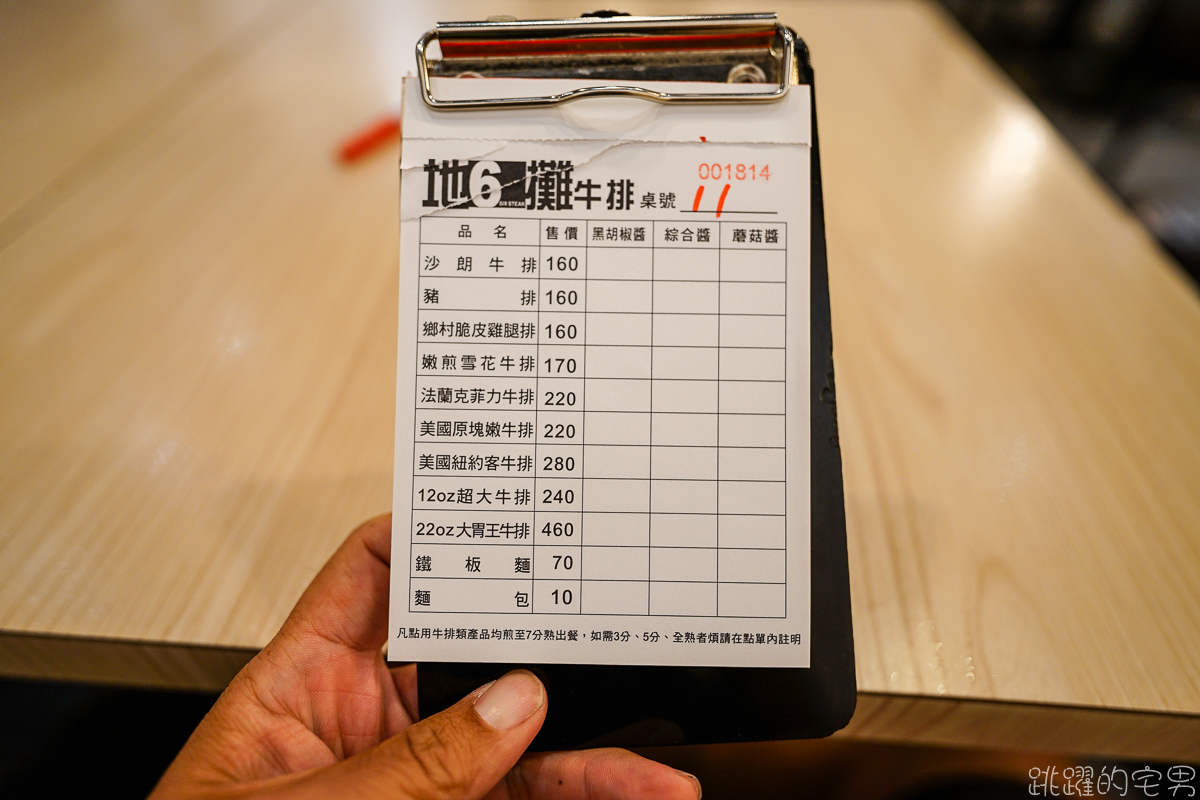 001814
地6攤牛排 桌號 11
SIR STEAK
品名 售價 黑胡椒醬 綜合醬 蘑菇醬
沙朗牛排 160
豬排 160
鄉村脆皮雞腿排 160
嫩煎雪花牛排 170
法蘭克菲力牛排 220
美國原塊嫩牛排 220
美國紐約客牛排 280
12oz超大牛排 240
22oz大胃王牛排 460
鐵板麵 70
麵包 10
凡點用牛排類產品均煎至7分熟出餐，如需3分、5分、全熟者煩請在點單內註明
跳躍的宅男